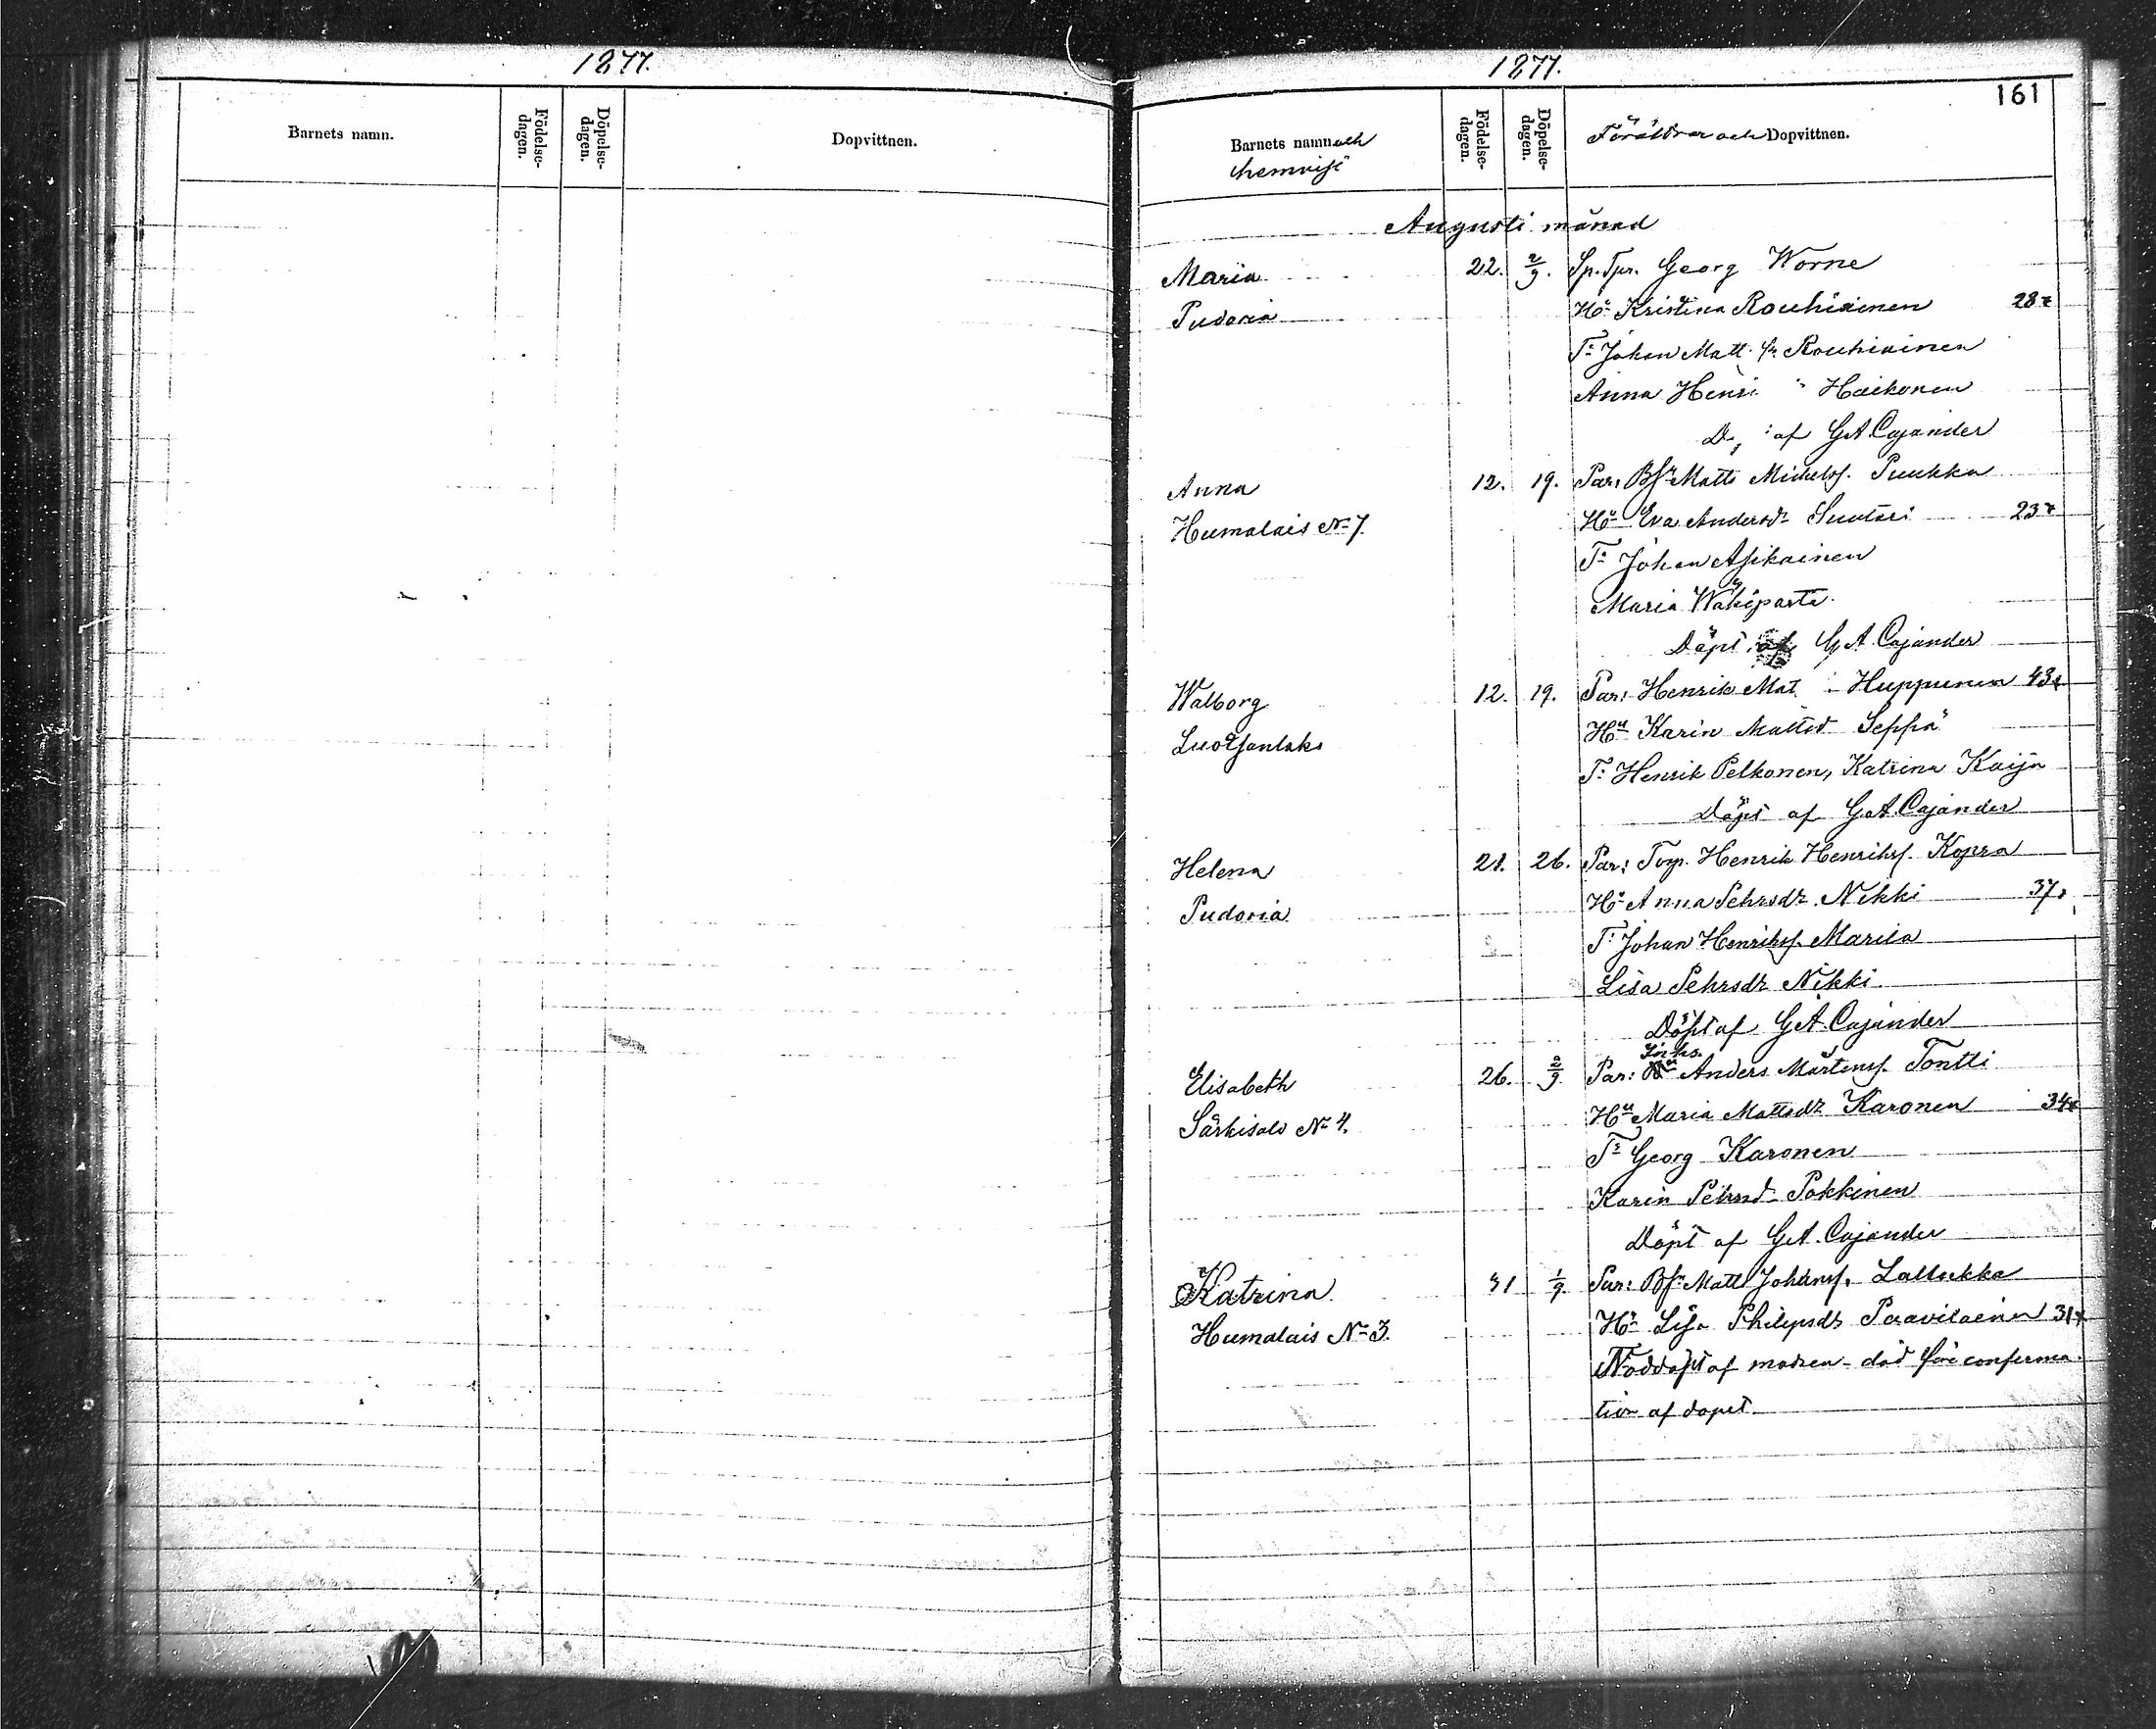 1877.
Barnets namn.
Födelse-dagen.
Döpelse-dagen.
Dopvittnen.
1877.
161
Barnets namn och hemvist
Födelse-dagen.
Döpelse-dagen.
Föräldrar och Dopvittnen.
Augusti månad
Maria 22. 2/9. Sp. Tpr. Georg Worne
Pudoria Hu Kristina Rouhiainen 28
T: Johan Matt. Rouhiainen
Anna Henr. Haikonen
D. af G A Cajander
Anna 12. 19. Par: Bf: Matts Michelss. Puukka
Humalais No 7. Hu Eva Andersdr Suutari 23
T: Johan Asikainen
Maria Wahiparta
Döpt af G A Cajander
Walborg 12. 19. Par: Henrik Mat. Huppunen 43
Hu Karin Mattsd Seppä
T: Henrik Pelkonen, Katrina Kaija
Döpt af G A Cajander
Helena 21. 26. Par: Torp. Henrik Henrikss. Kopra
Pudoria Hu Anna Pehrsdr Nikki 37
T: Johan Henrikss. Marila
Lisa Pehrsdr Nikki
Döpt af G A Cajander
Elisabeth 26. 2/9 Par: Inhs. Anders Mårtenss. Tontti
Särkisalo No 4. Hu Maria Mattsdr Karonen 34
T: Georg Karonen
Karin Pehrsd Pokkinen
Döpt af G A Cajander
Katrina 31 1/9. Par: Bf: Matts Johanss. Lallukka
Humalais No 3. Hu Lisa Philipsdr Paavilainen 31
Nöddöpt af modren - död före confirma-
tion af dopet